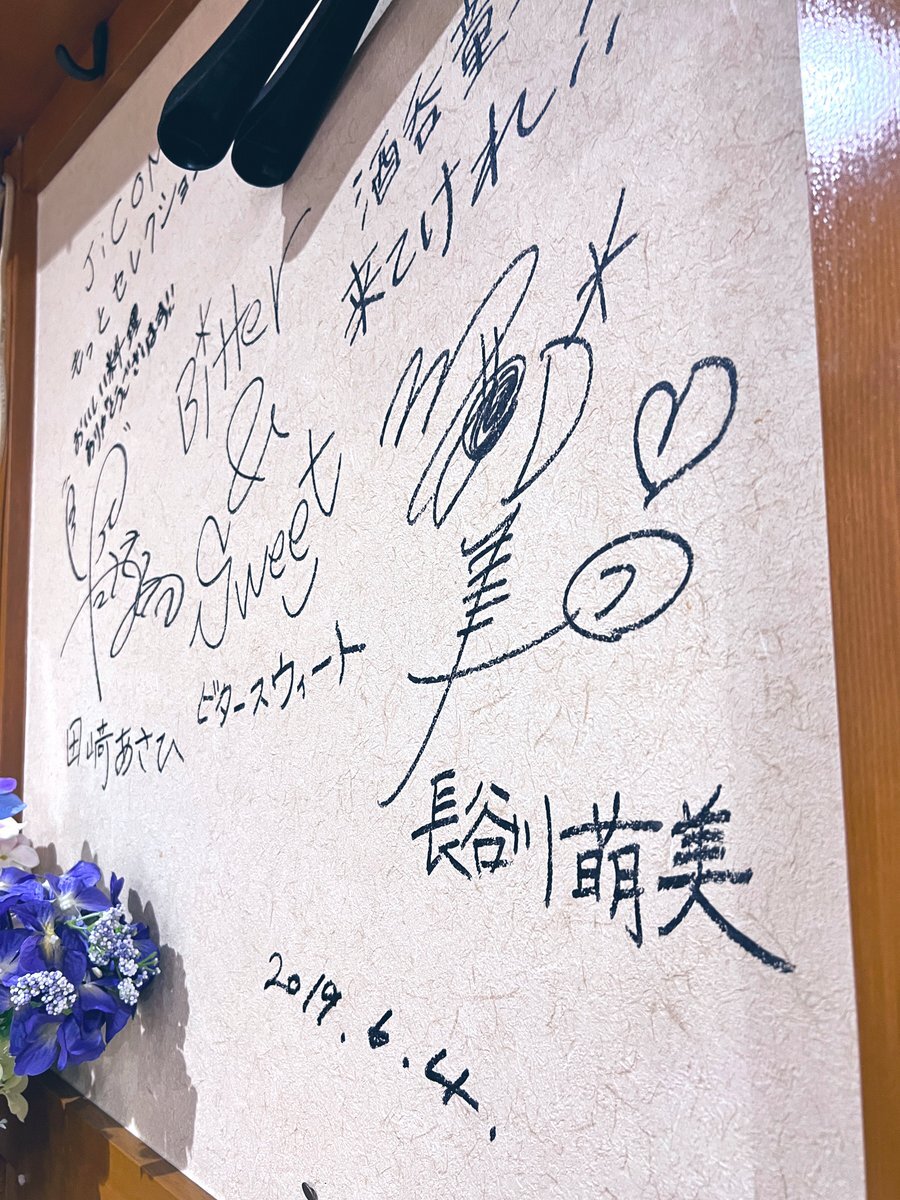 J:COM
もっとセレクション
おいしい料理
ありがとうございます!!
Bitter
&
Sweet
ビタースウィート
田﨑あさひ
酒呑童
来てけれ!!
美
長谷川萌美
2019.6.4.